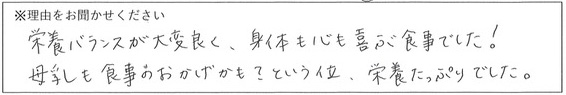 ※理由をお聞かせください
栄養バランスが大変良く、身体も心も喜ぶ食事でした！
母乳も食事のおかげかも？という位、栄養たっぷりでした。